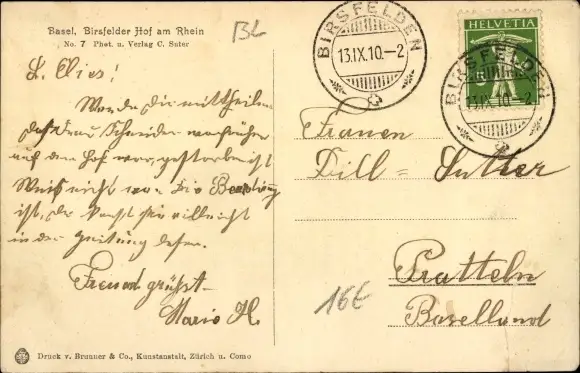 Basel. Birsfelder Hof am Rhein
No. 7 Phot. u. Verlag C. Suter
BL
L. Elies!
Werde Dir mittheilen
daß Frau Schneider von früher
auf dem Hof war, gestorben ist
Weiß nicht wann die Beerdigung
ist, du kannst es vielleicht
in der Zeitung lesen.
Freund grüßt
Marie H.
BIRSFELDEN
13.IX.10.-2
HELVETIA
5
BIRSFELDEN
13.IX.10.-2
Frauen
Dill = Sutter
Pratteln
Baselland
16E
Druck v. Brunner & Co., Kunstanstalt, Zürich u. Como